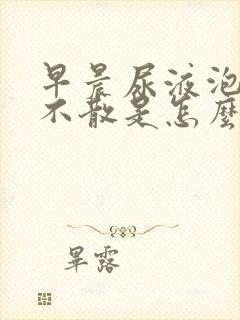 早晨尿液泡
不散是怎麼
畢露